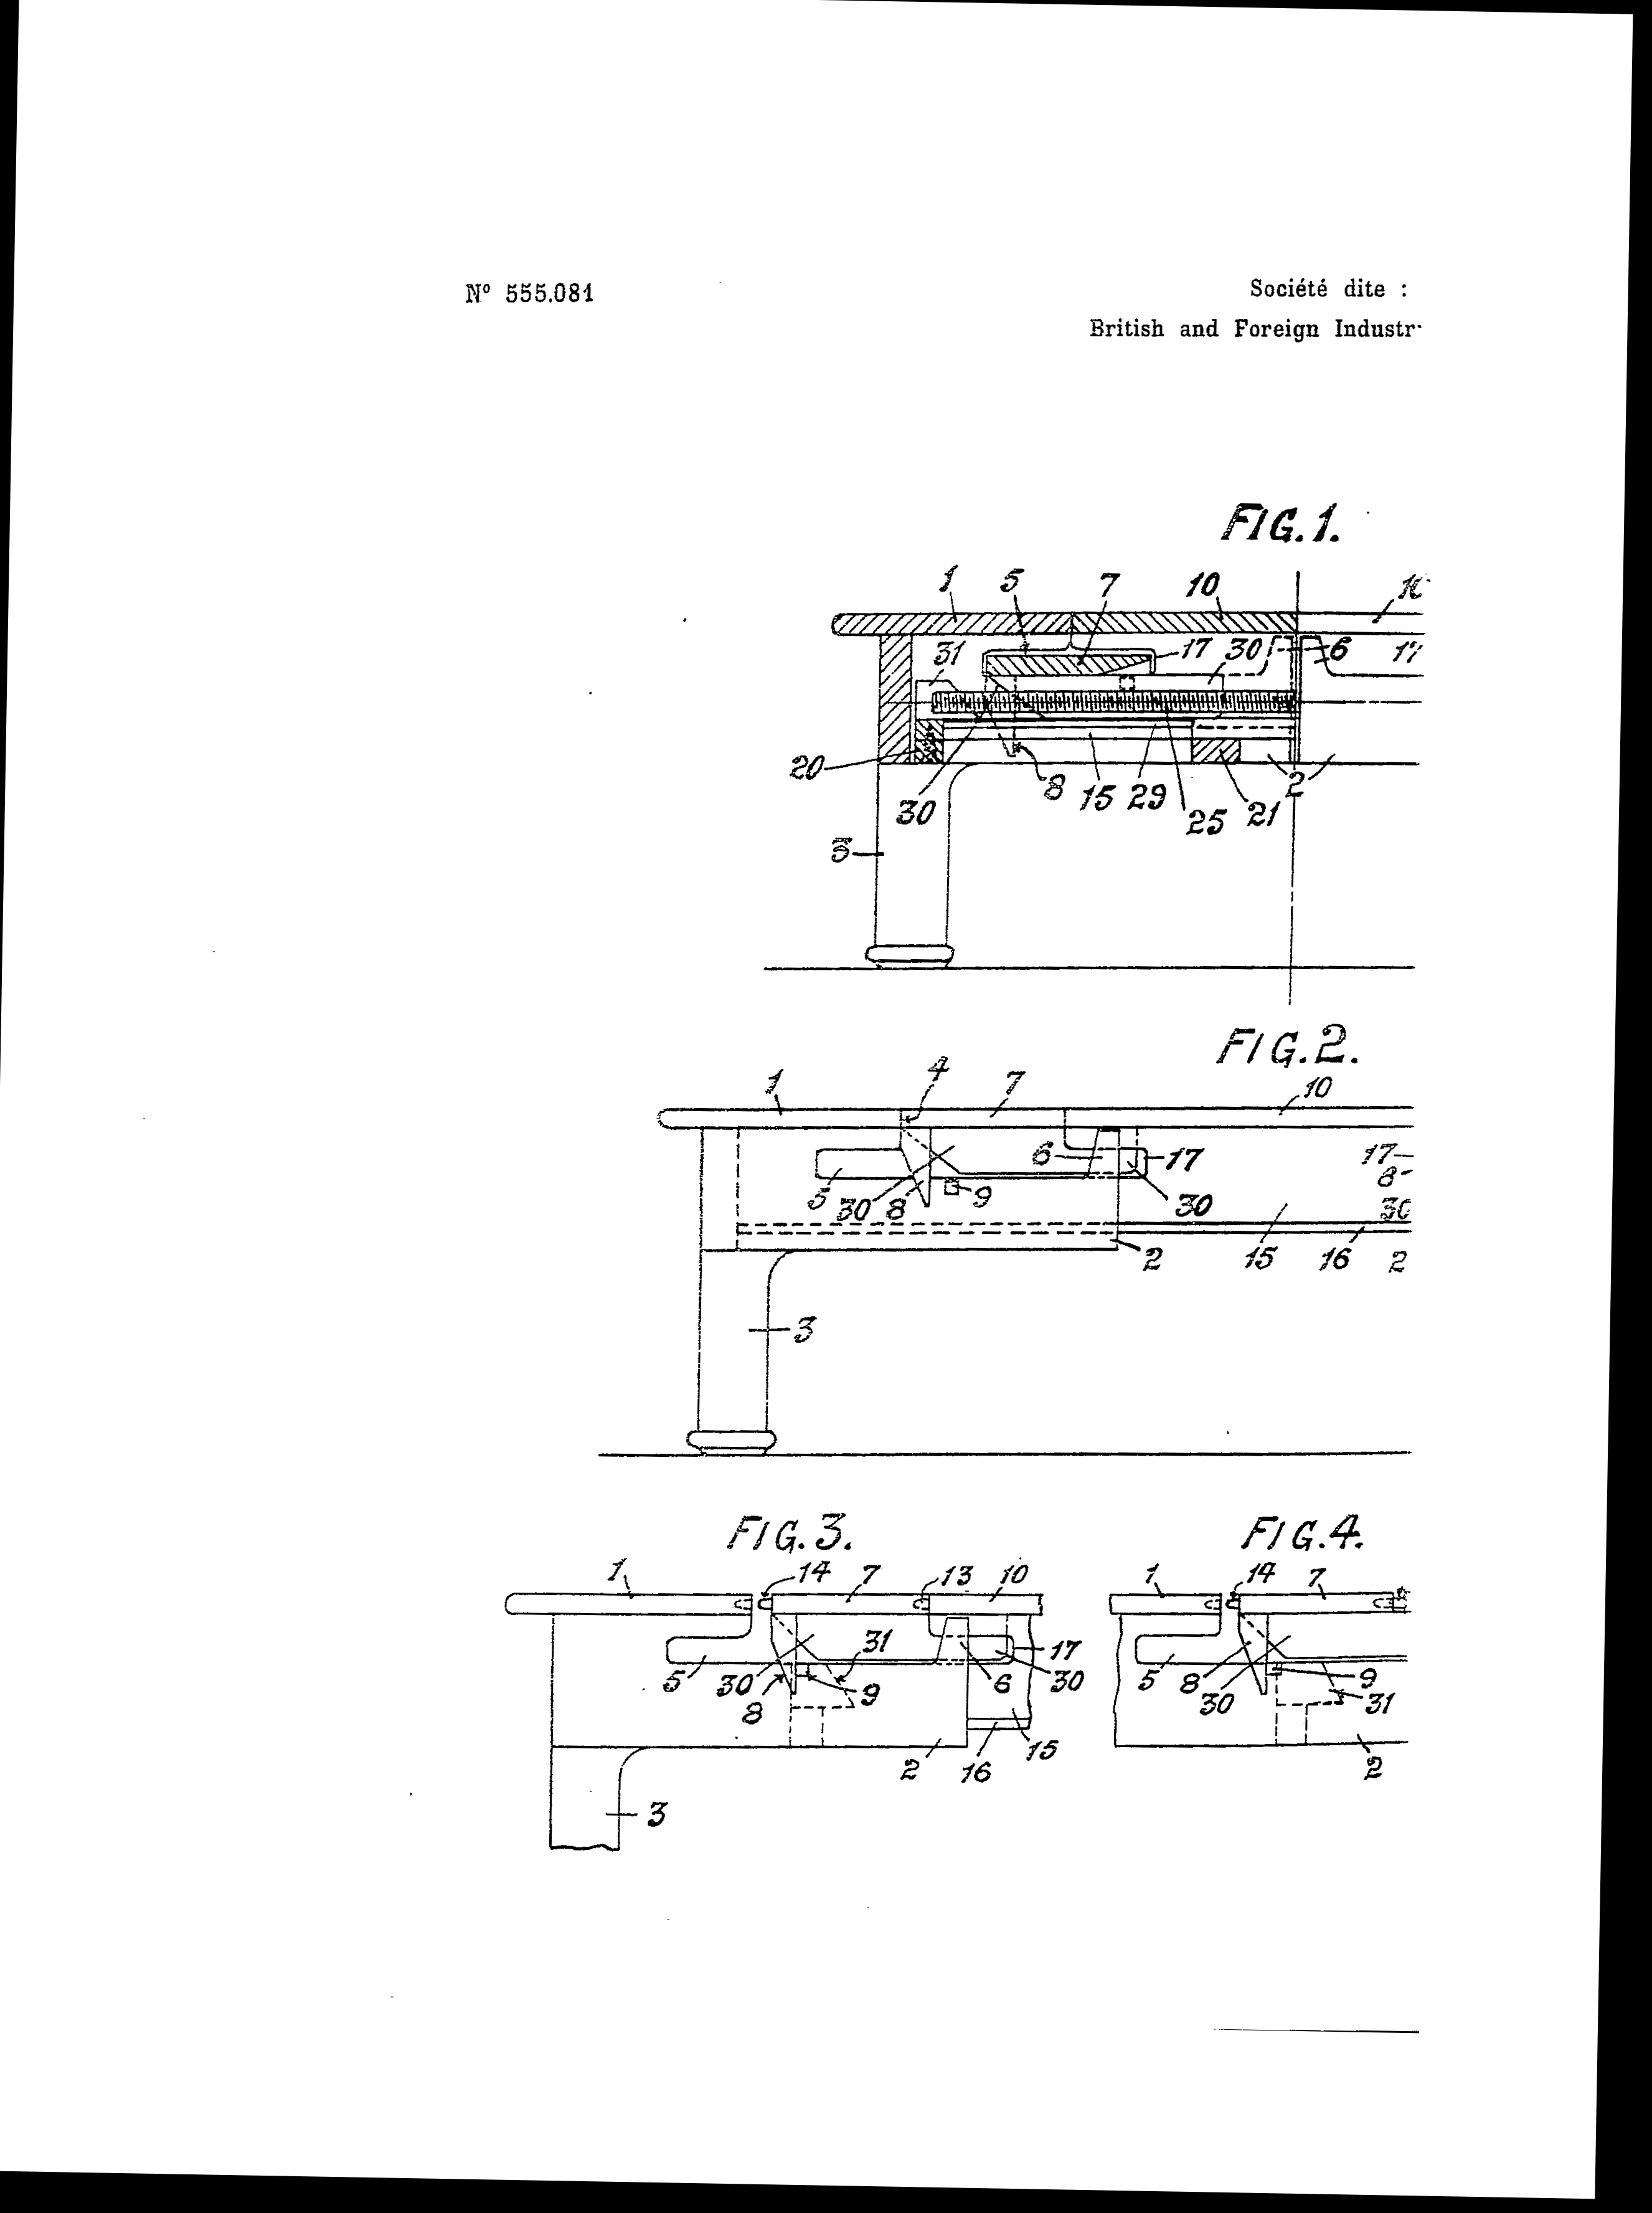 Nº 555.081
Société dite :
British and Foreign Industr
FIG.1.
1 5 7 10
31 17 30 6 17
20 30 8 15 29 25 21 2
3
FIG.2.
1 4 7 10
6 17 17
5 30 8 9 30 8 30
2 15 16 2
3
FIG.3.
1 14 7 13 10
31 17
5 30 8 9 6 30
2 16 15
3
FIG.4.
1 14 7
5 8 30 9 31
2